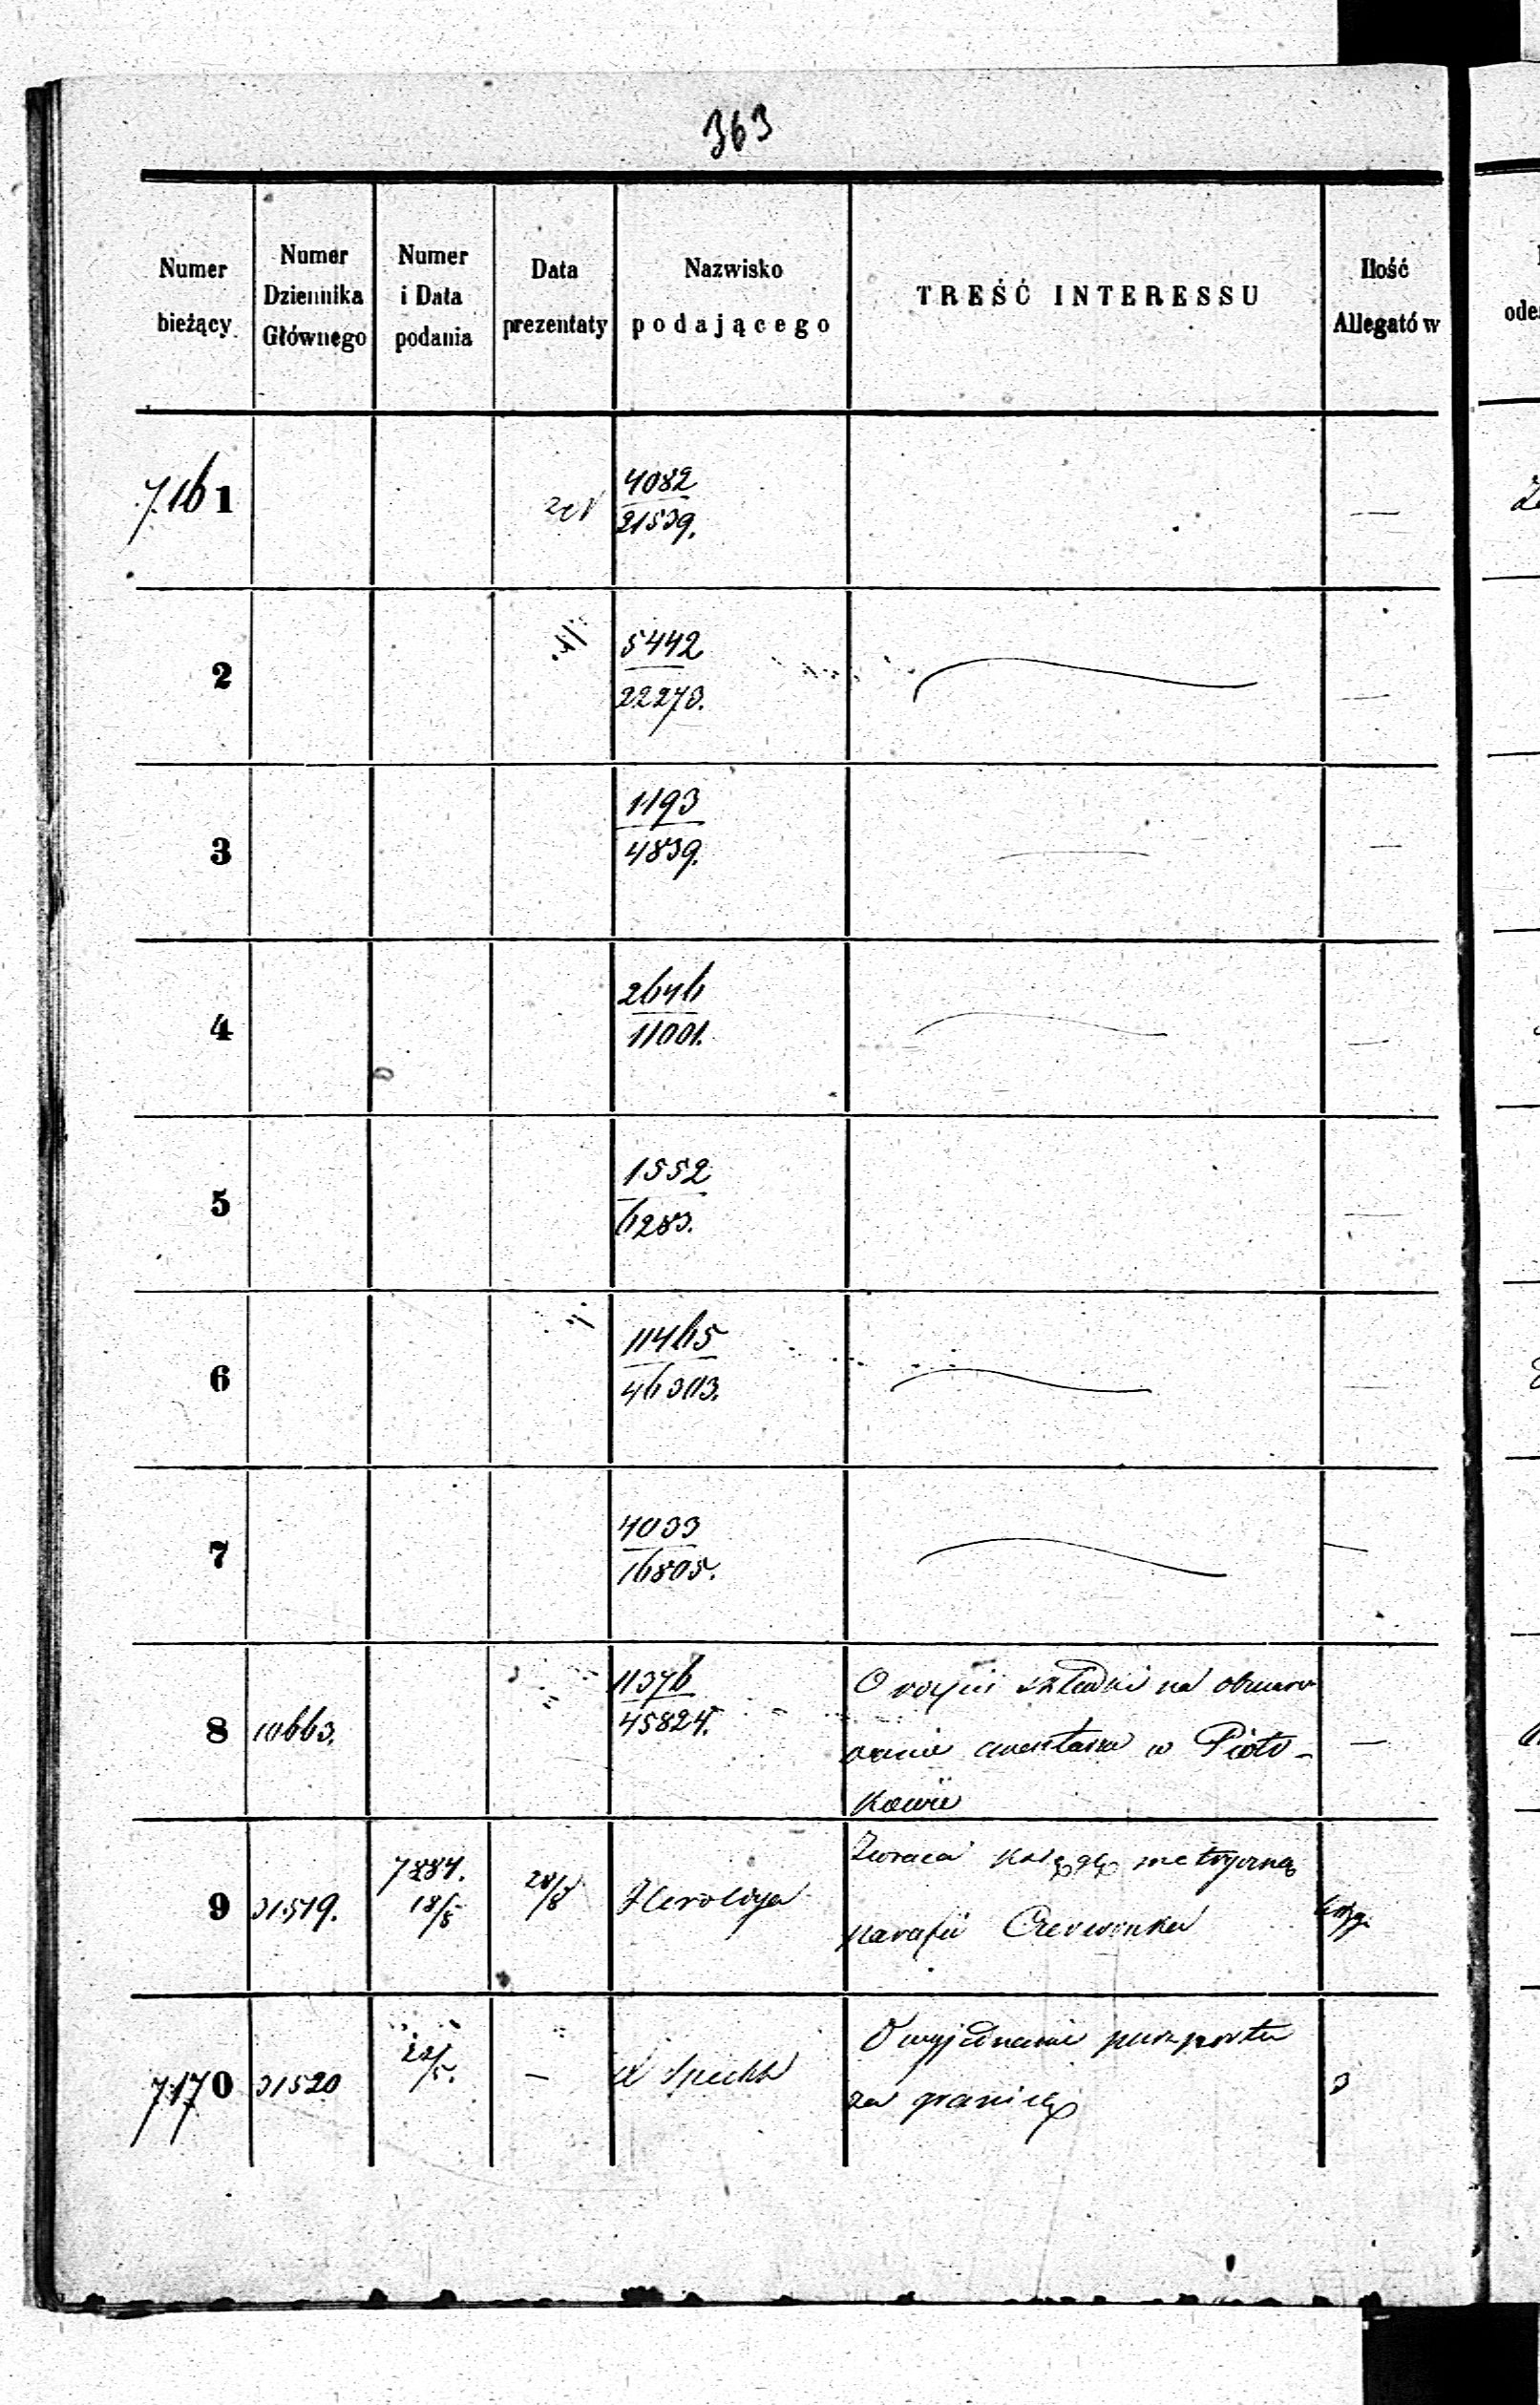 363
Numer bieżący
Numer Dziennika Głównego
Numer i Data podania
Data prezentaty
Nazwisko podającego
TREŚĆ INTERESSU
Ilość Allegatów
7161
4082
21539.
2
5442
22273.
3
1193
4839.
4
2646
11001.
5
1552
6283.
6
11465
46303.
7
4033
16805.
8 10663.
11376
45824.
O składki na obmuro
wanie cmentarza w Piotr-
kowie
9 31519.
7884.
18/5
28/5
Zwraca księgę metryczną
parafii Czerwonka
księg.
7170 31520
22/5.
—
O wyjednanie paszportu
za granicę
3